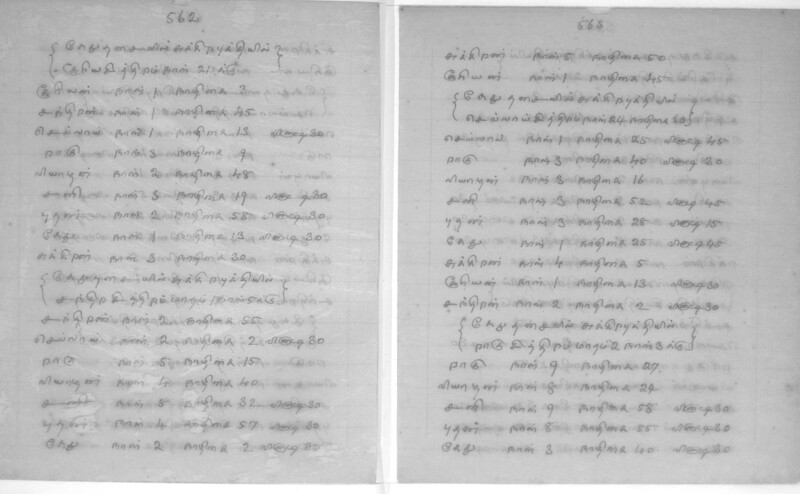 562
{ கேது தசையில் சுக்கிர புத்தியில்
சூரியசித்திரம் நாள் 21 க்கு }
சூரியன் நாள் 1 நாழிகை 3
சந்திரன் நாள் 1 நாழிகை 45
செவ்வாய் நாள் 1 நாழிகை 13 விநாடி 30
ராகு நாள் 3 நாழிகை 9
வியாழன் நாள் 2 நாழிகை 48
சனி நாள் 3 நாழிகை 19 விநாடி 30
புதன் நாள் 2 நாழிகை 58 விநாடி 30
கேது நாள் 1 நாழிகை 13 விநாடி 30
சுக்கிரன் நாள் 3 நாழிகை 30
{ கேது தசையில் சுக்கிர புத்தியில்
சந்திர சித்திரம் மாதம் 1 நாள் 5 க்கு }
சந்திரன் நாள் 2 நாழிகை 55
செவ்வாய் நாள் 2 நாழிகை 2 விநாடி 30
ராகு நாள் 5 நாழிகை 15
வியாழன் நாள் 4 நாழிகை 40
சனி நாள் 5 நாழிகை 32 விநாடி 30
புதன் நாள் 4 நாழிகை 57 விநாடி 30
கேது நாள் 2 நாழிகை 2 விநாடி 30
563
சுக்கிரன் நாள் 5 நாழிகை 50
சூரியன் நாள் 1 நாழிகை 45
{ கேது தசையில் சுக்கிர புத்தியில்
செவ்வாய் சித்திரம் நாள் 24 நாழிகை 30 }
செவ்வாய் நாள் 1 நாழிகை 25 விநாடி 45
ராகு நாள் 3 நாழிகை 40 விநாடி 30
வியாழன் நாள் 3 நாழிகை 16
சனி நாள் 3 நாழிகை 52 விநாடி 45
புதன் நாள் 3 நாழிகை 28 விநாடி 15
கேது நாள் 1 நாழிகை 25 விநாடி 45
சுக்கிரன் நாள் 4 நாழிகை 5
சூரியன் நாள் 1 நாழிகை 13 விநாடி 30
சந்திரன் நாள் 2 நாழிகை 2 விநாடி 30
{ கேது தசையில் சுக்கிர புத்தியில்
ராகு சித்திரம் மாதம் 2 நாள் 3 க்கு }
ராகு நாள் 9 நாழிகை 27
வியாழன் நாள் 8 நாழிகை 24
சனி நாள் 9 நாழிகை 58 விநாடி 30
புதன் நாள் 8 நாழிகை 55 விநாடி 30
கேது நாள் 3 நாழிகை 40 விநாடி 30